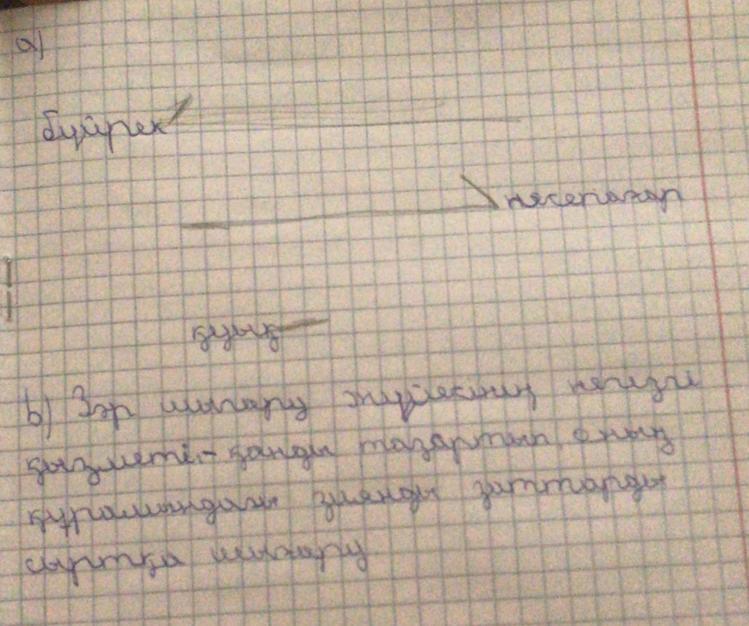 a)
бүйрек
несепағар
қуық
b) Зәр шығару жүйесінің негізгі
қызметі - қанды тазартып, оның
құрамындағы зиянды заттарды
сыртқа шығару